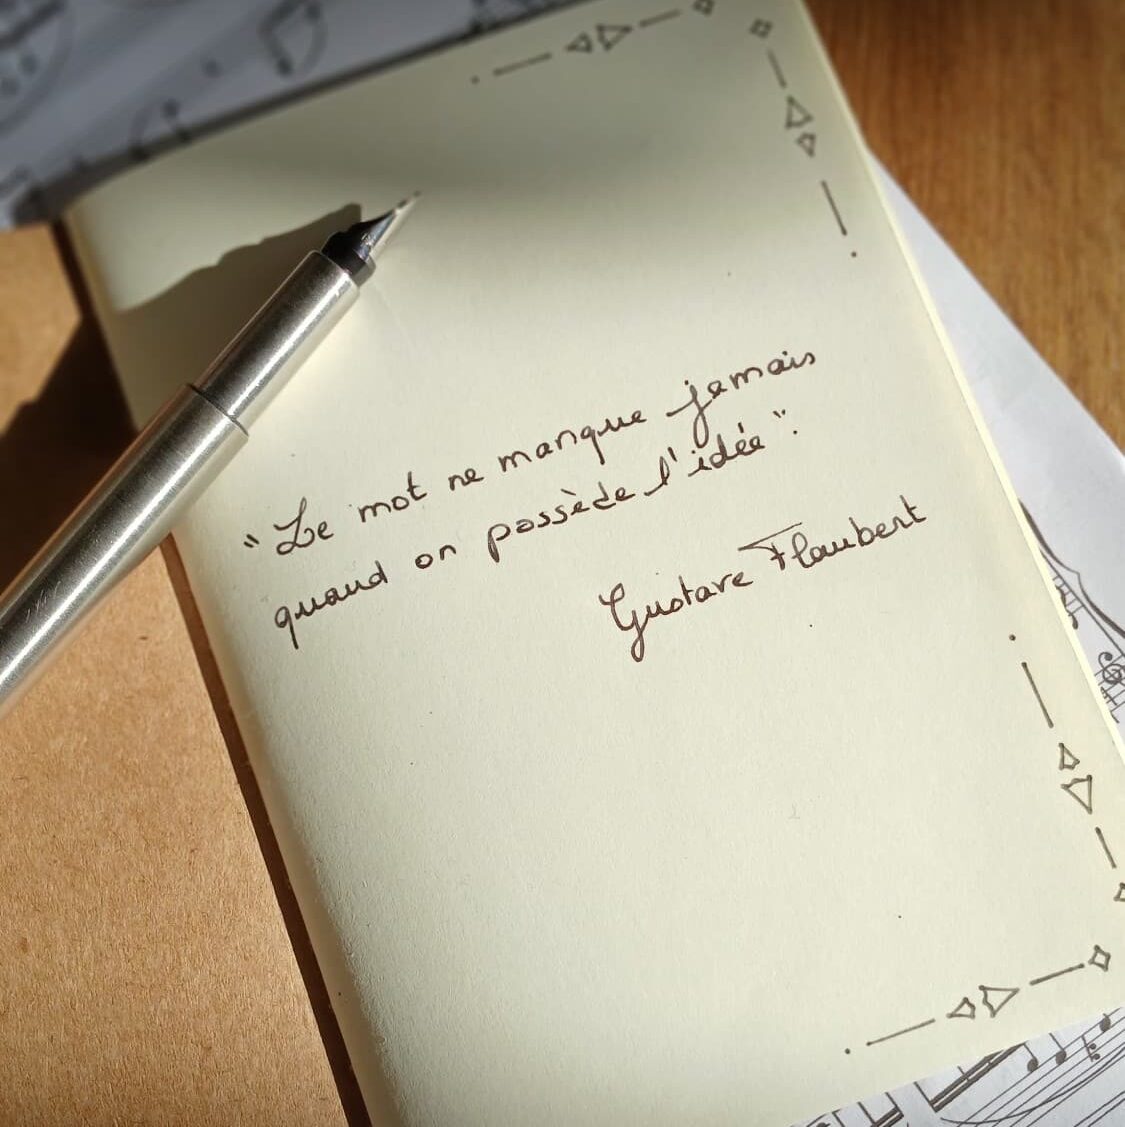 "Le mot ne manque jamais
quand on possède l'idée".
Gustave Flaubert